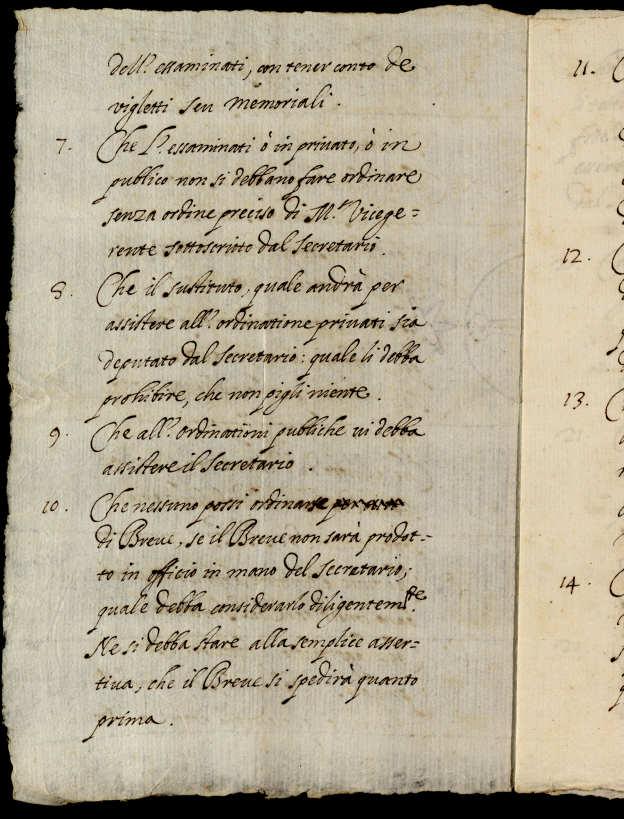 dell'essaminati, con tener conto de
viglietti seu memoriali.
7. Che l'essaminati ò in privato, ò in
publico non si debbano fare ordinare
senza ordine preciso di M.r Vicege=
rente sottoscritto dal Secretario.
8. Che il sustituto, quale andrà per
assistere all'ordinatione privati sia
deputato dal Secretario: quale li debba
prohibire, che non pigli niente.
9. Che all'ordinationi publiche vi debba
assistere il Secretario.
10. Che nessuno possi ordinarse
di Breve, se il Breve non sarà prodot=
to in officio in mano del Secretario;
quale debba considerarlo diligentem.te
Ne si debba stare alla semplice asser=
tiva, che il Breve si spedirà quanto
prima.
11.
12.
13.
14.